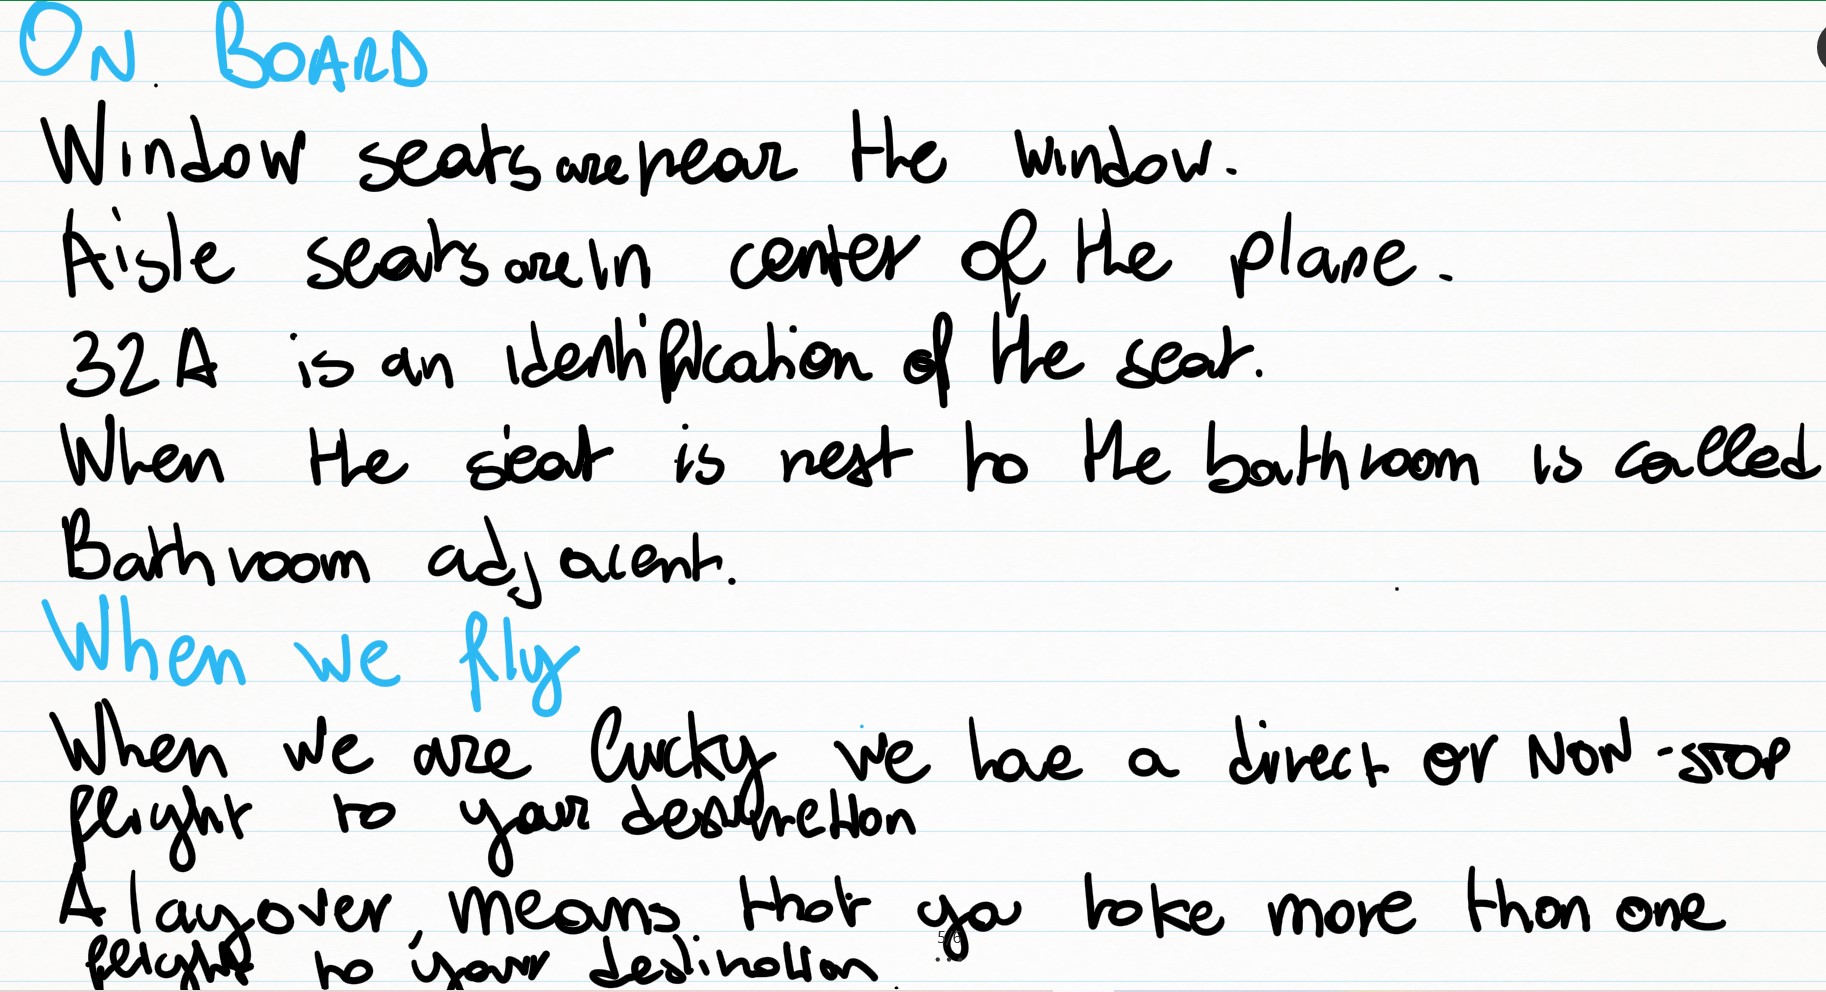 ON BOARD
Window seats are near the window.
Aisle seats are in center of the plane.
32A is an identification of the seat.
When the seat is next to the bathroom is called
Bathroom adjacent.
When we fly
When we are lucky we have a direct or NON-STOP
flight to your destination
A layover, means that you take more than one
flight to your destination.
5/6